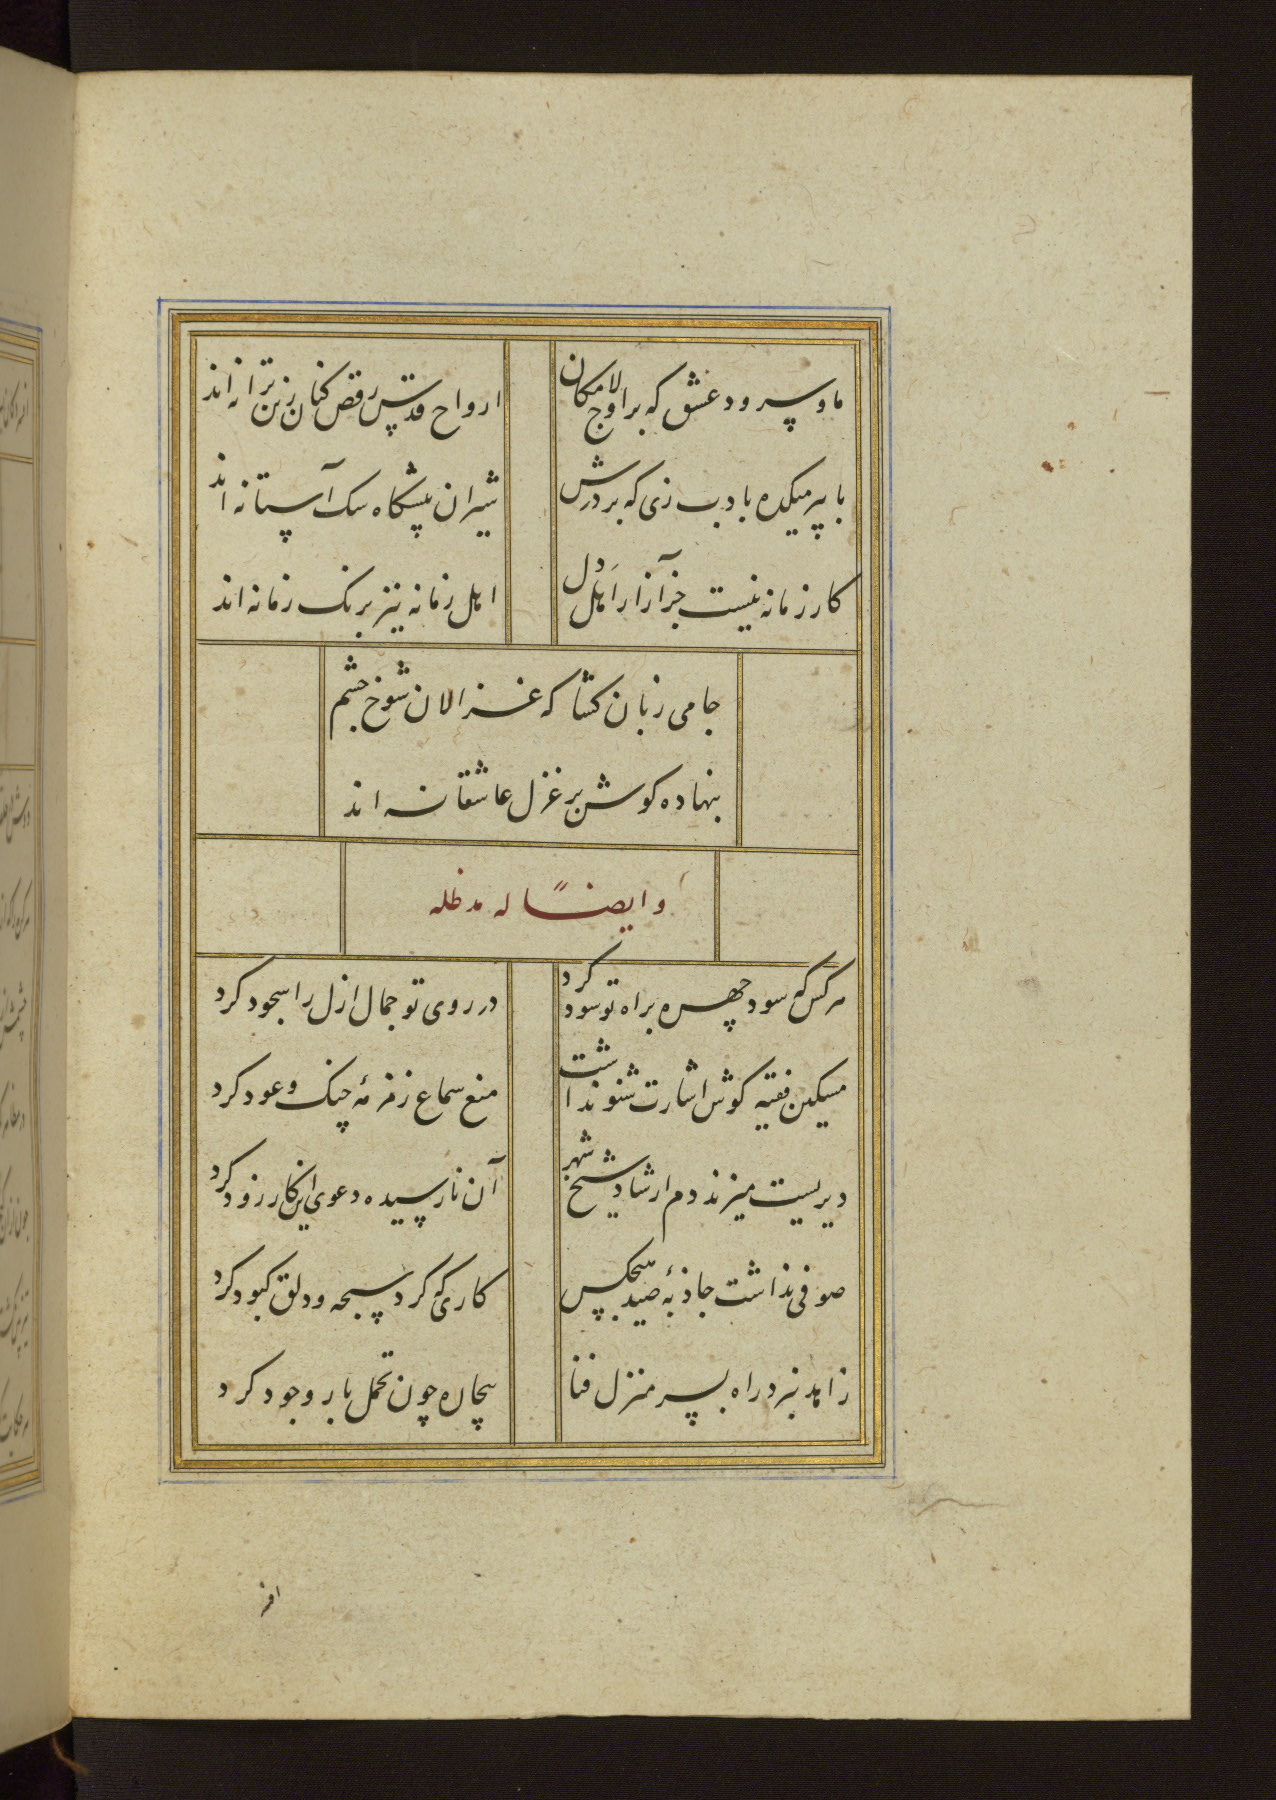 ما و سرود عشق که بر اوج لامکان
ارواح قدس رقص کنان زین ترانه اند
با پیر میکده بادب زی که بر درش
شیران پیشگاه سک آستانه اند
کار زمانه نیست جز آزار اهل دل
اهل زمانه نیز برنک زمانه اند
جامی زبان کشا که غزالان شوخ چشم
بنهاده کوش بر غزل عاشقانه اند
وایضاً له مد ظله
هر کس که سود چهره براه تو سود کرد
در روی تو جمال ازل را سجود کرد
مسکین فقیه کوش اشارت شنو نداشت
منع سماع زمزمهٔ چنک و عود کرد
دیریست میزند دم ارشاد شیخ شهر
آن نارسیده دعوی این کار زود کرد
صوفی نداشت جاذبهٔ صید هیچکس
کاری که کرد سبحه و دلق کبود کرد
زاهد نبرد راه بسر منزل فنا
بیچاره چون تحمل بار وجود کرد